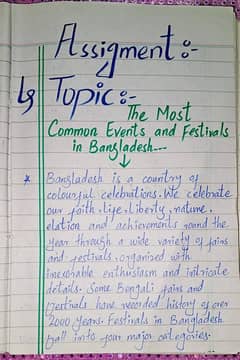 Assigment:-
Topic:-
The Most
Common Events and Festivals
in Bangladesh---
* Bangladesh is a country of
colourful celebrations. We celebrate
our faith, life, liberty, nature,
elation and achievements round the
year through a wide variety of fairs
and festivals, organised with
inexorable enthusiasm and intricate
details. Some Bengali fairs and
festivals have recorded history of over
2000 years. Festivals in Bangladesh
fall into four major categories.